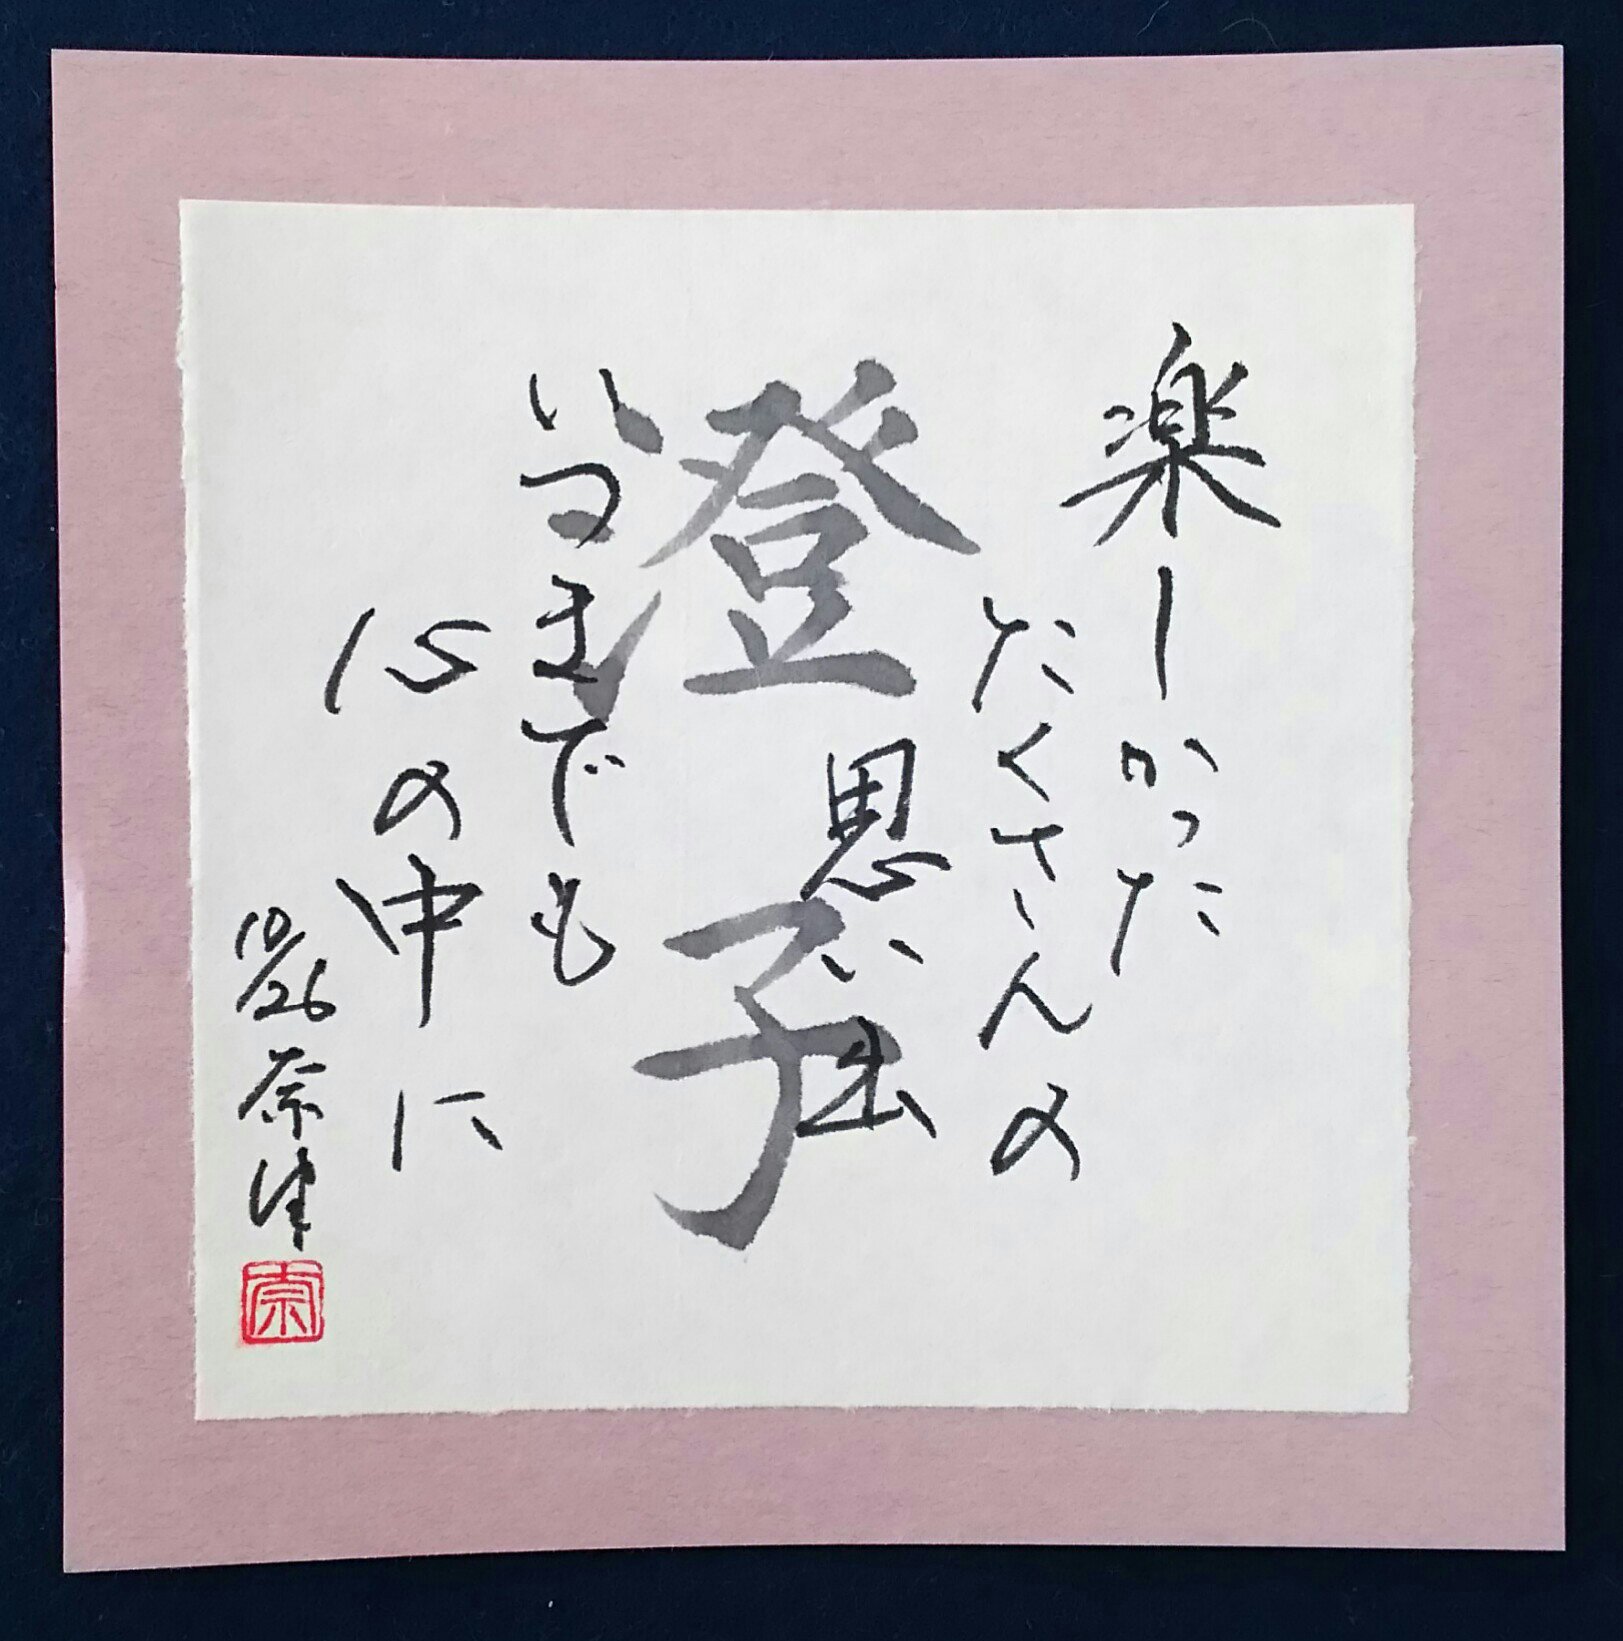 楽しかった
たくさんの
思い出
澄子
いつまでも
心の中に
10/26 奈津
奈